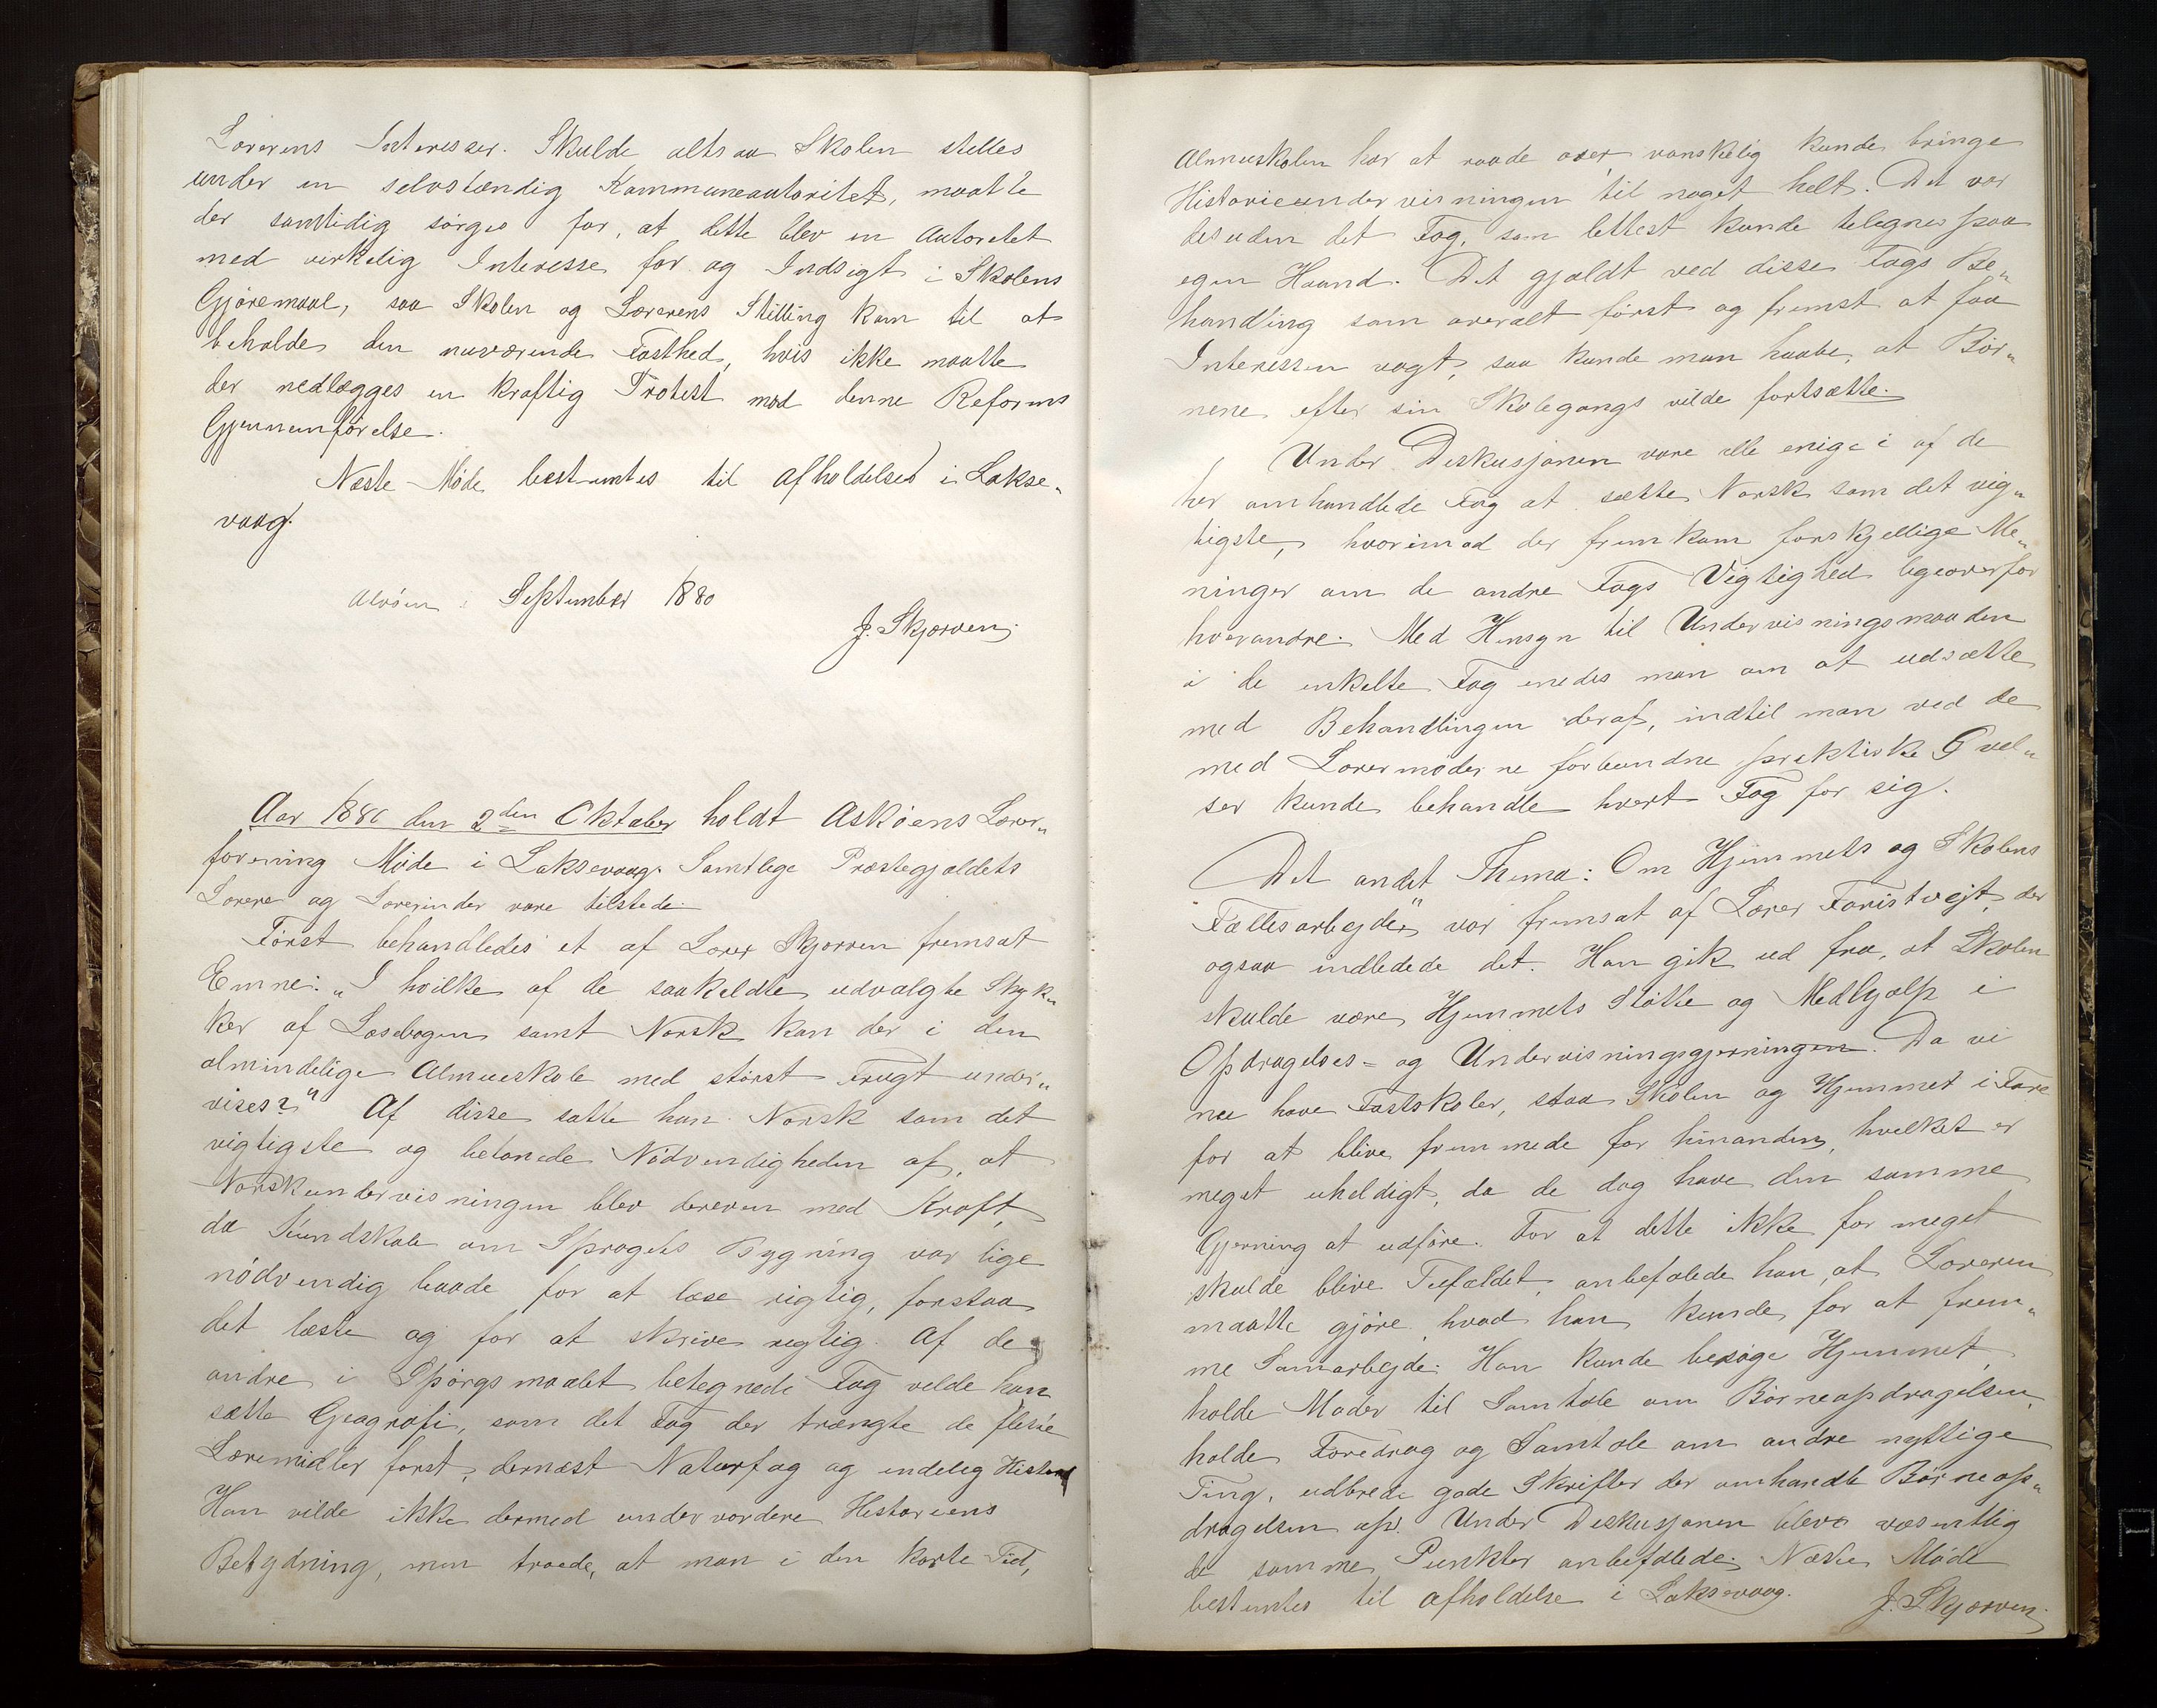 Lærerens Interesser. Skulde altsaa Skolen stilles
under en selvstændig Kommuneautoritet, maatte
der samtidig sørges for, at dette blev en Autoritet
med virkelig Interesse for og Indsigt i Skolens
Gjøremaal, saa Skolen og Lærerens Stilling kom til at
beholde den nuværende Fasthed, hvis ikke maatte
der nedlægges en kraftig Protest mod denne Reforms
Gjennemførelse.
Næste Møde bestemtes til Afholdelse i Lakse„
vaag.
Alvøen September 1880
J. Skjærven.
Aar 1880 den 2den Oktober holdt Askøens Lærer„
forening Møde i Laksevaag. Samtlige Præstegjældets
Lærere og Lærerinder vare tilstede.
Først behandledes et af Lærer Skjærven fremsat
Emne: „I hvilke af de saakaldte udvalgte Styk„
ker af Læsebogen samt Norsk kan der i den
almindelige Almueskole med størst Frugt under„
vises?" Af disse satte han Norsk som det
vigtigste og betonede Nødvendigheden af, at
Norskundervisningen blev dreven med Kraft,
da Kundskab om Sprogets Bygning var lige
nødvendig baade for at læse rigtig, forstaa
det læste og for at skrive rigtig. Af de
andre i Spørgsmaalet betegnede Fag vilde han
sætte Geografi, som det Fag der trængte de fleste
Læremidler først, dernæst Naturfag og endelig Historie
Han vilde ikke dermed undervurdere Historiens
Betydning, men troede, at man i den korte Tid,
Almueskolen har at raade over vanskelig kunde bringe
Historieundervisningen til noget helt. Det var
desuden det Fag, som lettest kunde tilegnes paa
egen Haand. Det gjaldt ved disse Fags Be„
handling som overalt først og fremst at faa
Interessen vagt, saa kunde man haabe, at Bør„
nene efter sin Skolegang vilde fortsætte.
Under Diskusjonen vare alle enige i af de
her omhandlede Fag at sætte Norsk som det vig„
tigste, hvorimod der fremkom forskjellige Me„
ninger om de andre Fags Vigtighed ligeoverfor
hverandre. Med Hensyn til Undervisningsmaaden
i de enkelte Fag enedes man om at udsætte
med Behandlingen deraf, indtil man ved de
med Lærermøderne forbundne praktiske Øvel„
ser kunde behandle hvert Fag for sig.
Det andet Thema: Om Hjemmets og Skolens
Fællesarbejde" var fremsat af Lærer Faristvejt, der
ogsaa indledede det. Han gik ud fra, at Skolen
skulde være Hjemmets Støtte og Medhjælp i
Opdragelses- og Undervisningsgjerningen. Da vi
nu have Fastskoler, staa Skolen og Hjemmet i Fare
for at blive fremmede for hinanden, hvilket er
meget uheldigt, da de dog have den samme
Gjerning at udføre. For at dette ikke for meget
skulde blive Tilfældet, anbefalede han, at Læreren
maatte gjøre hvad han kunde for at frem„
me Samarbejde. Han kunde besøge Hjemmet,
holde Møder til Samtale om Børneopdragelsen,
holde Foredrag og Samtale om andre nyttige
Ting, udbrede gode Skrifter der omhandle Børneop„
dragelsen osv. Under Diskusjonen bleve væsentlig
de samme Punkter anbefalede. Næste Møde
bestemtes til Afholdelse i Laksevaag.
J. Skjærven.